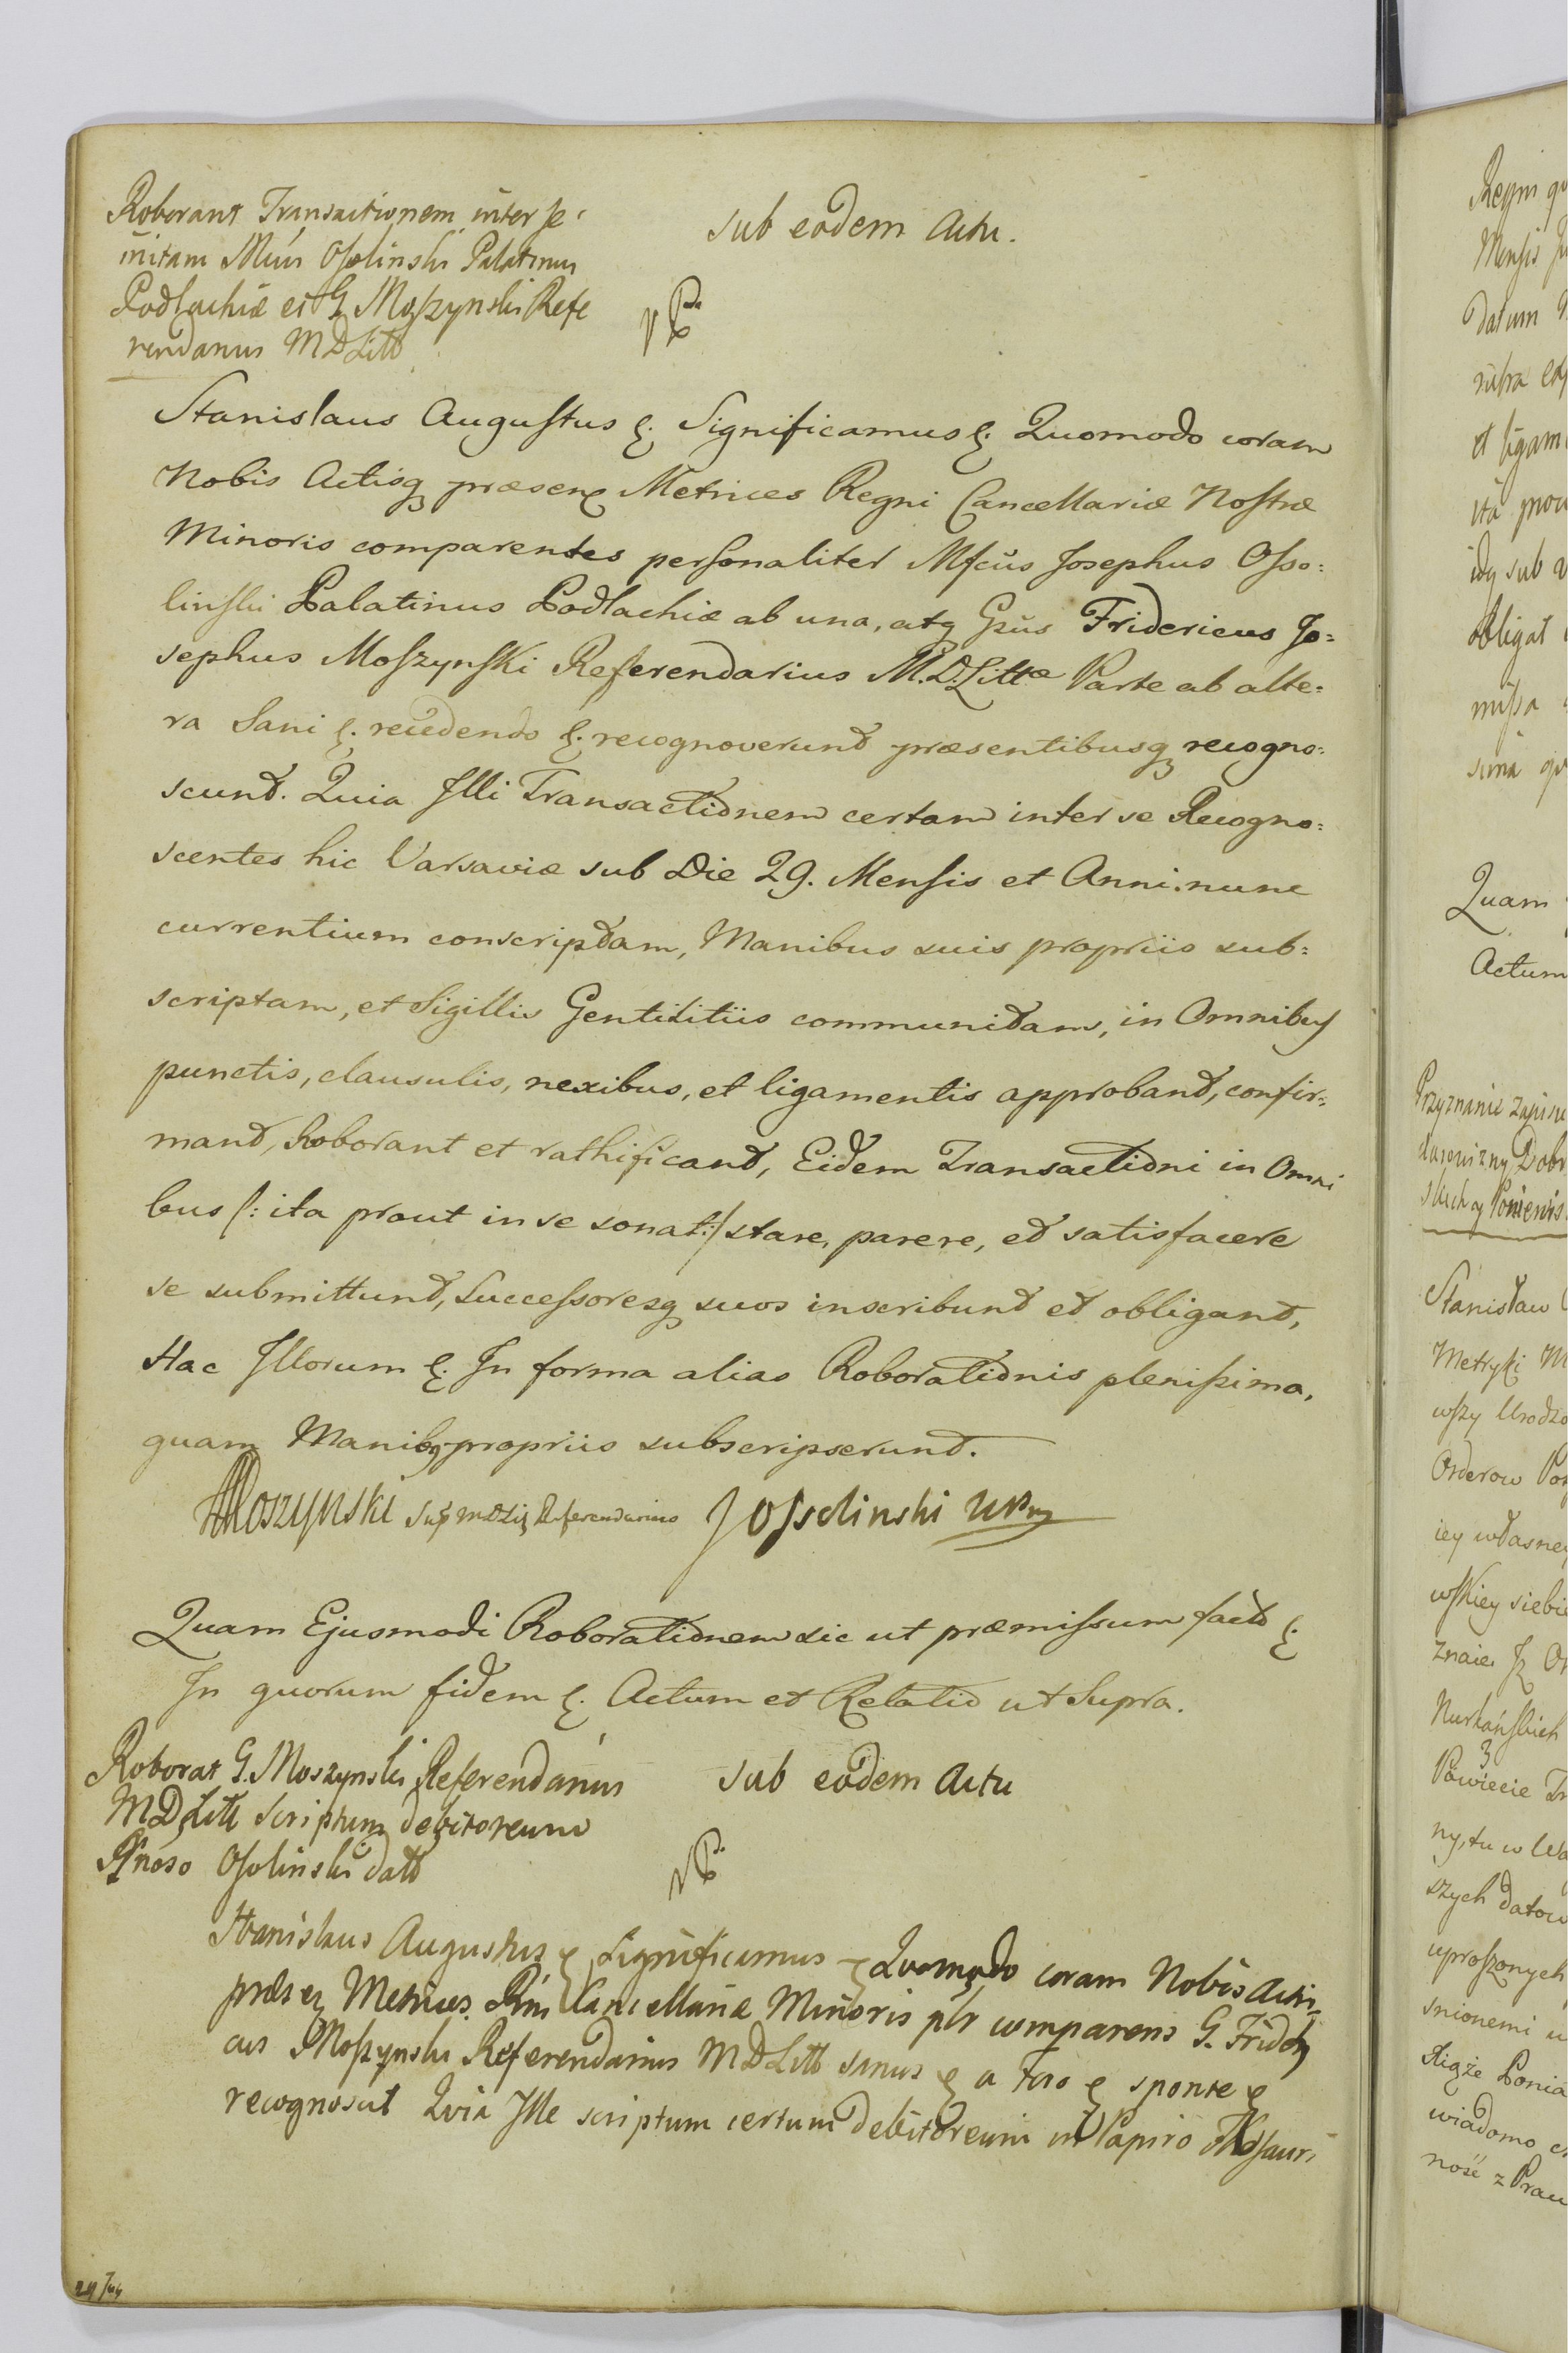 Roborant Transactionem inter se
initam Mcus Ossolinski Palatinus
Podlachiæ et G Moszynski Refe
rendarius MDLitt
Sub eodem Actu.
Stanislaus Augustus &. Significamus &. Quomodo coram
Nobis Actisq præsen Metrices Regni Cancellariæ Nostræ
Minoris comparentes personaliter Mfcus Josephus Osso:
linski Palatinus Podlachiæ ab una, atq Gsus Fridericus Jo=
sephus Moszynski Referendarius M.D.Littæ Parte ab alte=
ra Sani &. recedendo &. recognoverunt præsentibusq recogno:
scunt. Quia Illi Transactionem certam inter se Recogno:
scentes hic Varsaviæ sub Die 29. Mensis et Anni nunc
currentium conscriptam, Manibus suis propriis sub:
scriptam, et Sigillis Gentilitiis communitam, in Omnibus
punctis, clausulis, nexibus, et ligamentis approbant, confir:
mant, Roborant et rathificant, Eidem Transactioni in Omni
bus /: ita prout in se sonat :/ stare, parere, et satisfacere
se submittunt, Successoresq suos inscribunt et obligant,
Hac Illorum &. In forma alias Roborationis plenissima,
quam Manibq propriis subscripserunt.
Moszynski Referendarius JOssolinski WPny
Quam Ejusmodi Roborationem sic ut præmissum fact &
In quorum fidem &. Actum et Relatio ut Supra.
Roborat G. Moszynski Referendarius
MDLitt Scriptum debitoreum
Ossolinski datt
Sub eodem Actu
Stanislaus Augustus & Significamus & Quomodo coram Nobis Actis
Metrices Rni Cancellariæ Minoris plr comparens G. Frideri
cus Moszynski Referendarius MDLitt sanus & a foro & sponte &
recognoscit Quia Ille scriptum certum debitoreum in Papiro Thesauri
Regni
Mensis
Datum
et ligam
ita prou
sub
obligat
missa
Quam
Actum
Przyznanie zapisu
Dobr
Stanisław
Metryki M
wszy Urodzo
Orderow
iey własney
wskiey siebie
znaie Jz
Powiecie
ny, tu w Wa
szych datow
uproszonych
wiadomo
ność z Praw